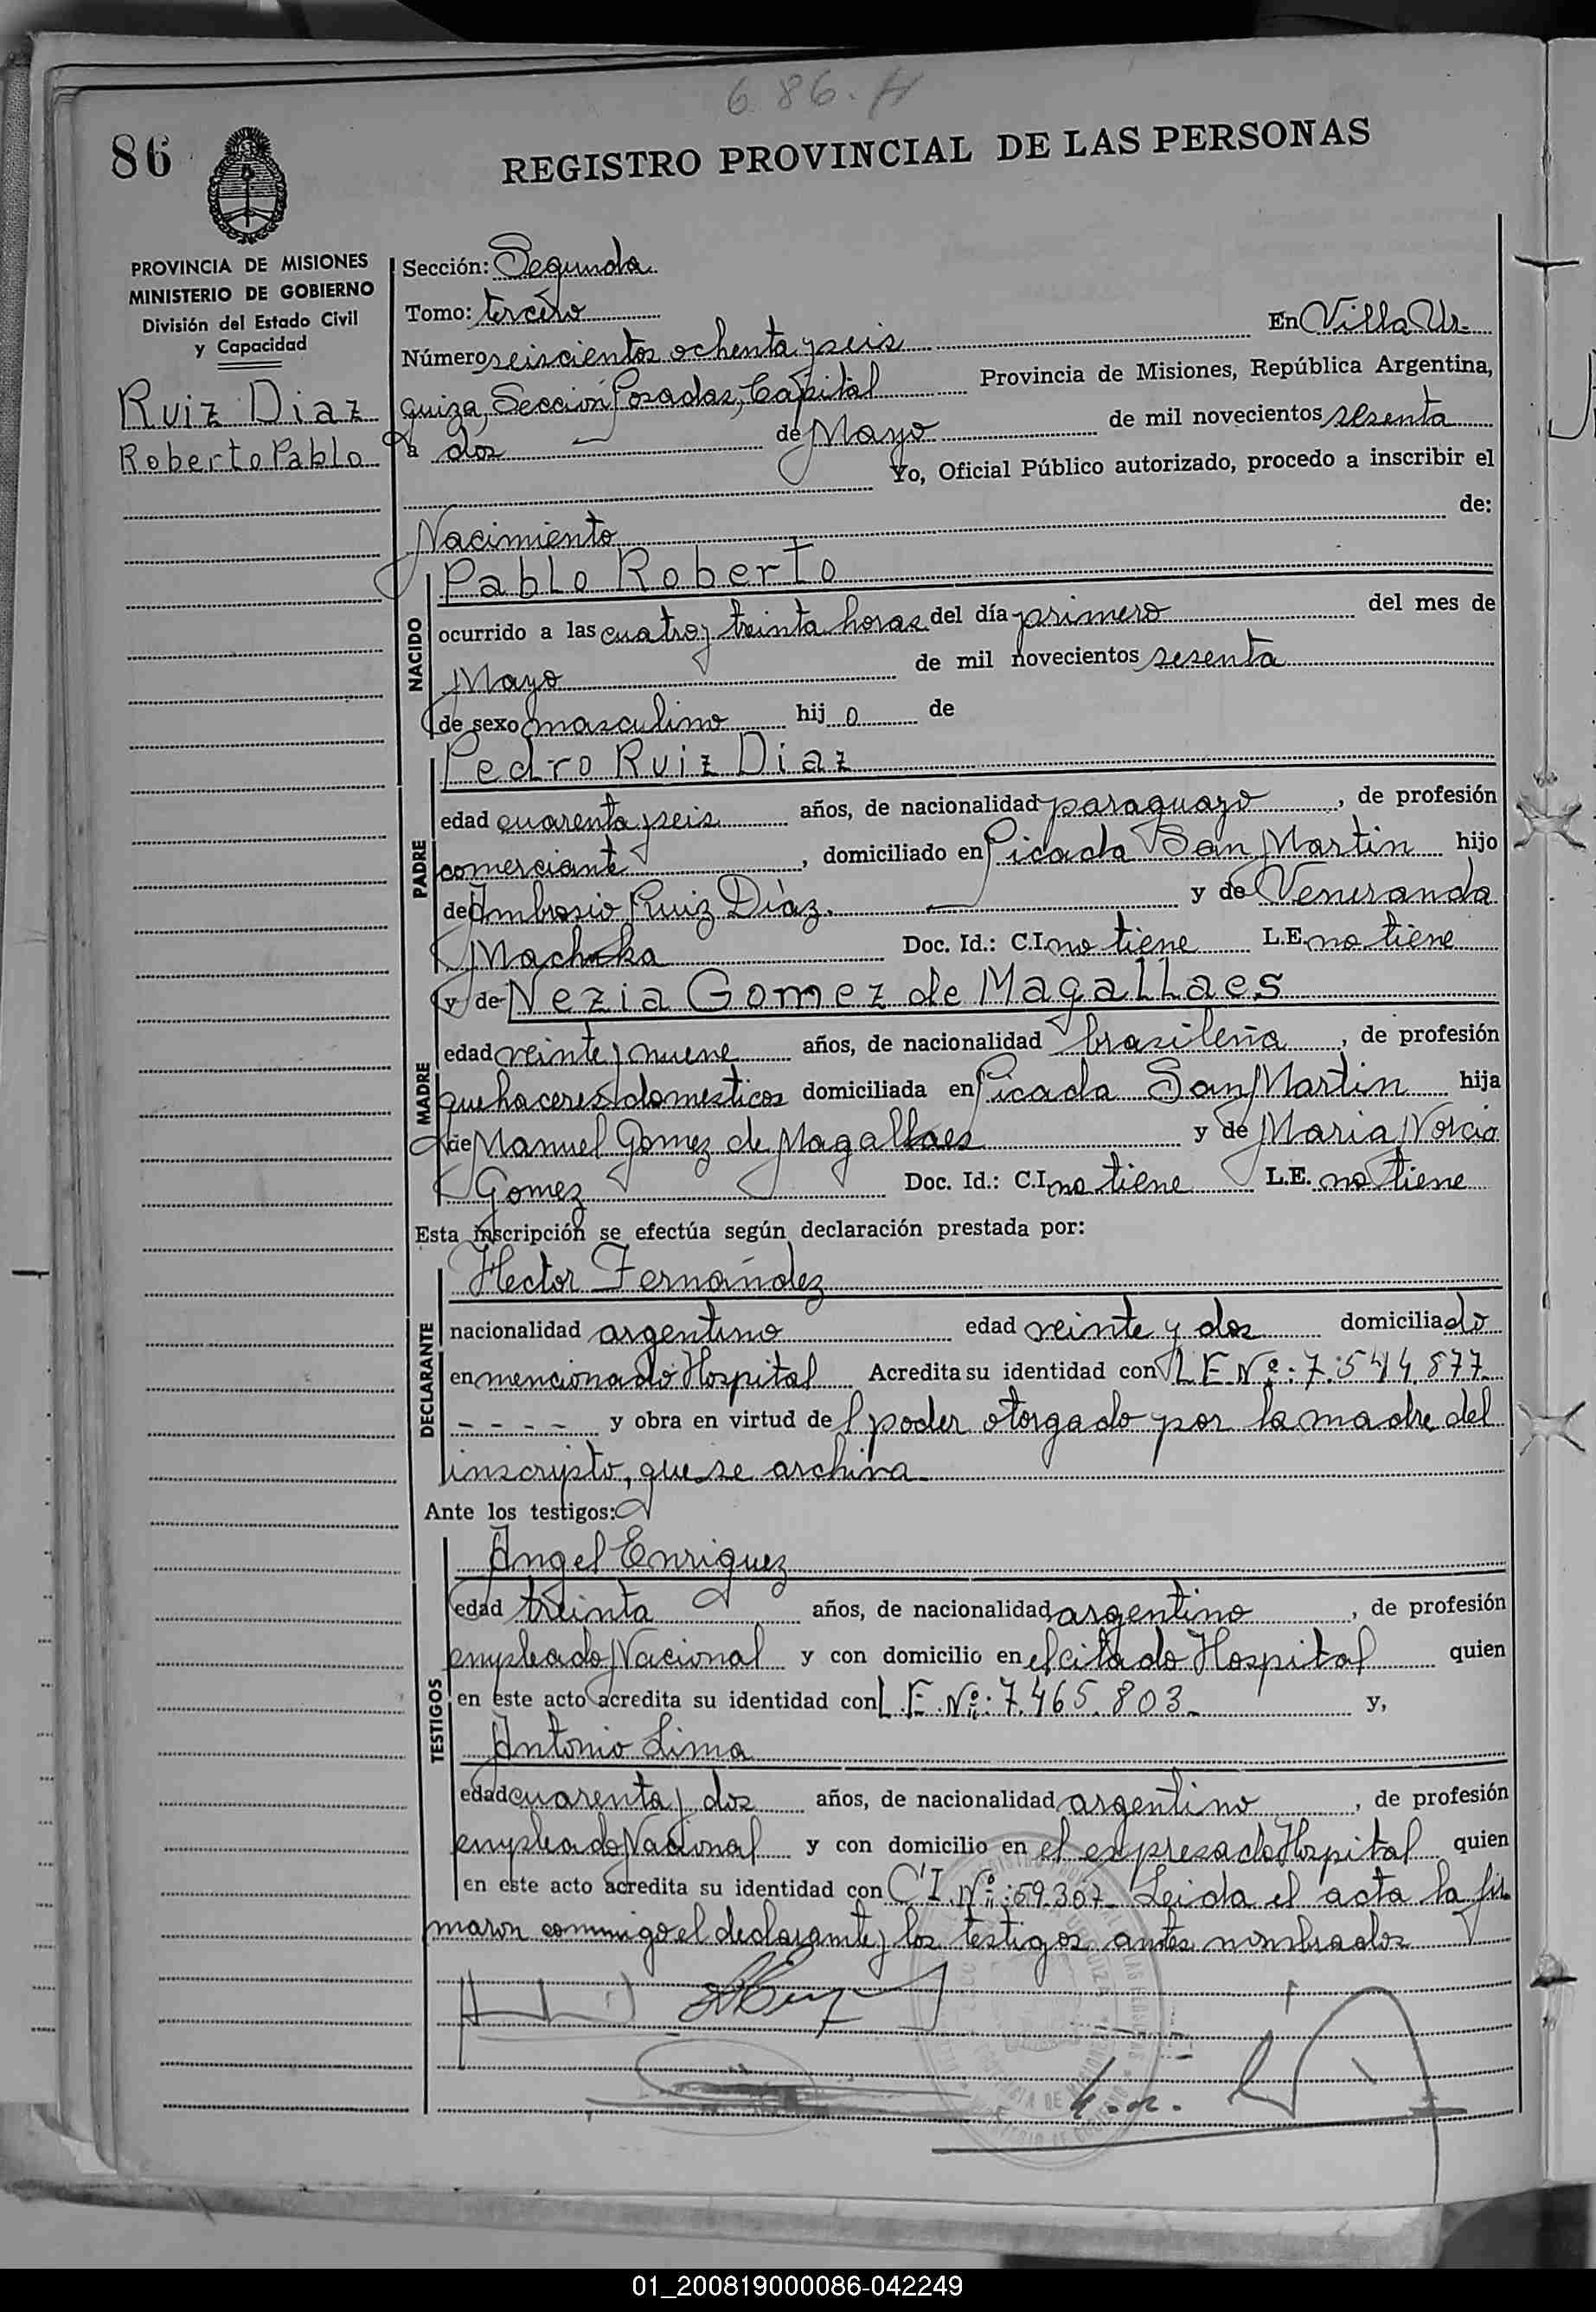 686. H
86
REGISTRO PROVINCIAL DE LAS PERSONAS
PROVINCIA DE MISIONES
MINISTERIO DE GOBIERNO
División del Estado Civil
y Capacidad
Ruiz Diaz
Roberto Pablo
Sección: Segunda
Tomo: tercero
Número seiscientos ochenta y seis En Villa Ur-
quiza, Sección Posadas, Capital Provincia de Misiones, República Argentina,
a dos de Mayo de mil novecientos sesenta
Yo, Oficial Público autorizado, procedo a inscribir el
Nacimiento de:
NACIDO
Pablo Roberto
ocurrido a las cuatro y treinta horas del día primero del mes de
Mayo de mil novecientos sesenta
de sexo masculino hijo de
PADRE
Pedro Ruiz Diaz
edad cuarenta y seis años, de nacionalidad paraguayo, de profesión
comerciante, domiciliado en Picada San Martin hijo
de Ambrosio Ruiz Díaz. y de Veneranda
Machuka Doc. Id.: C.I. no tiene L.E. no tiene
MADRE
y de Nezia Gomez de Magallaes
edad veinte y nueve años, de nacionalidad brasileña, de profesión
quehaceres domesticos domiciliada en Picada San Martin hija
de Manuel Gomez de Magallaes y de Maria Norcia
Gomez Doc. Id.: C.I. no tiene L.E. no tiene
Esta inscripción se efectúa según declaración prestada por:
DECLARANTE
Hector Fernández
nacionalidad argentino edad veinte y dos domiciliado
en mencionado Hospital Acredita su identidad con L E Nº: 7.544.877
- - - - y obra en virtud del poder otorgado por la madre del
inscripto, que se archiva
Ante los testigos:
TESTIGOS
Angel Enriquez
edad treinta años, de nacionalidad argentino, de profesión
empleado Nacional y con domicilio en el citado Hospital quien
en este acto acredita su identidad con L.E. Nº: 7.465.803 y,
Antonio Lima
edad cuarenta y dos años, de nacionalidad argentino, de profesión
empleado Nacional y con domicilio en el expresado Hospital quien
en este acto acredita su identidad con C.I. Nº: 59.307- Leida el acta la fir
maron conmigo el declarante y los testigos antes nombrados
01_200819000086-042249